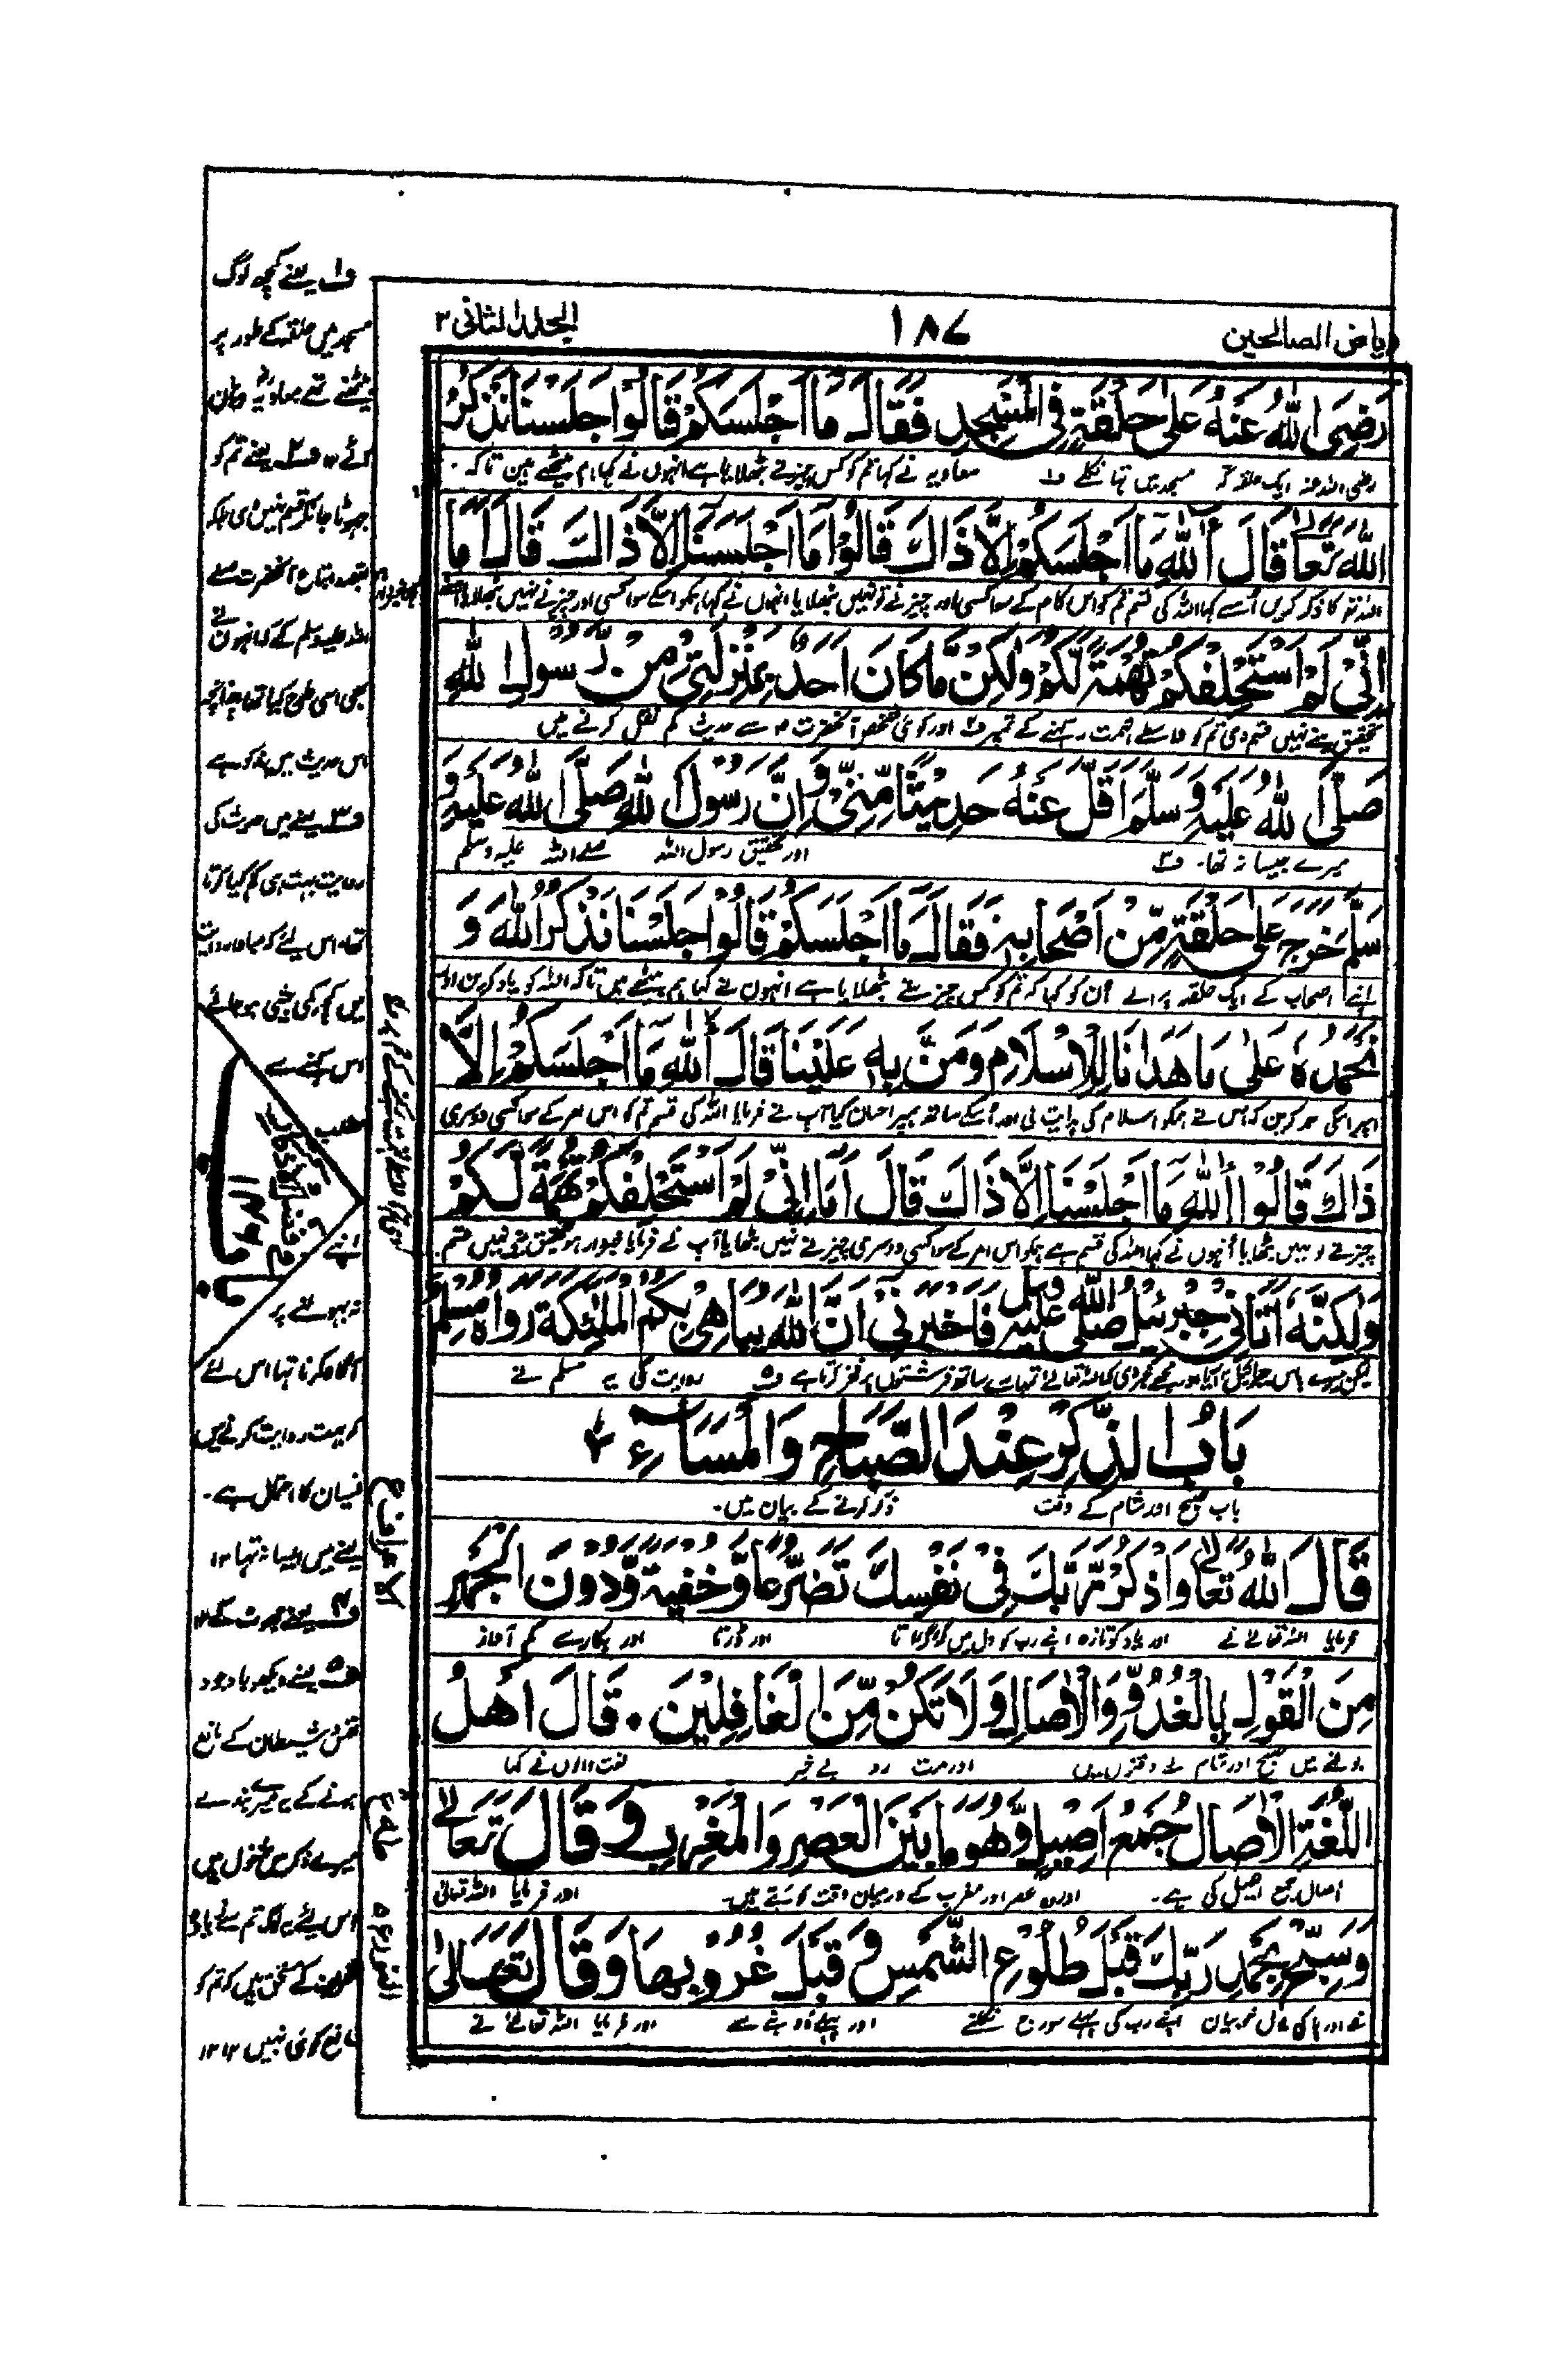 ریاض الصالحین
۱۸۷
المجلد الثانی ۳
رَضِیَ اللّٰهُ عَنْهُ عَلٰی حَلْقَةٍ فِی الْمَسْجِدِ فَقَالَ مَا اَجْلَسَكُمْ قَالُوْا جَلَسْنَا نَذْكُرُ
رضی اللہ عنہ ایک حلقہ پر مسجد میں تہا نکلے ف۱ معاویہ نے کہا تم کو کس چیز نے بٹھلایا ہے انہوں نے کہا ہم بیٹھے ہین تاکہ
اللّٰهَ تَعَالٰی قَالَ آللّٰهِ مَا اَجْلَسَكُمْ اِلَّا ذَاكَ قَالُوْا مَا اَجْلَسَنَا اِلَّا ذَاكَ قَالَ اَمَا
اللہ تم کا ذکر کریں اُسے کہا اللہ کی قسم تم کو اس کام کے سوا کسی اور چیز نے تو نہیں بٹھلایا انہوں نے کہا ہمکو اسکے سوا کسی اور چیز نے نہیں بٹھلایا
اِنِّیْ لَمْ اَسْتَحْلِفْكُمْ تُهْمَةً لَّكُمْ وَلٰكِنْ مَّا كَانَ اَحَدٌ بِمَنْزِلَتِیْ مِنْ رَّسُوْلِ اللّٰهِ
تحقیق مینے نہیں قسم دی تم کو واسطے تہمت رکہنے کے تمپر ف۲ اور کوئی شخص آنحضرت م سے حدیث کم نقل کرنے میں
صَلَّی اللّٰهُ عَلَیْهِ وَسَلَّمَ اَقَلَّ عَنْهُ حَدِیْثًا مِّنِّیْ وَ اِنَّ رَسُوْلَ اللّٰهِ صَلَّی اللّٰهُ عَلَیْهِ وَ
میرے جیسا نہ تھا۔ ف۳ اور تحقیق رسول اللہ صلے اللہ علیہ وسلم
سَلَّمَ خَرَجَ عَلٰی حَلْقَةٍ مِّنْ اَصْحَابِهٖ فَقَالَ مَا اَجْلَسَكُمْ قَالُوْا جَلَسْنَا نَذْكُرُ اللّٰهَ وَ
اپنے اصحاب کے ایک حلقہ پر آئے اُن کو کہا کہ تم کو کس چیز نے بٹھلایا ہے انہون نے کہا ہم بیٹھے ہیں تاکہ اللہ کو یاد کرین اور
نَحْمَدُهٗ عَلٰی مَا هَدَانَا لِلْاِسْلَامِ وَمَنَّ بِهٖ عَلَیْنَا قَالَ آللّٰهِ مَا اَجْلَسَكُمْ اِلَّا
اسپر اسکی حمد کرین کہ اس نے ہمکو اسلام کی ہدایت کی اور اُسکے ساتھ ہمپر احسان کیا آپ نے فرمایا اللہ کی قسم تم کو اس امر کے سوا کسی دوسری
ذَاكَ قَالُوْا اَللّٰهِ مَا اَجْلَسَنَا اِلَّا ذَاكَ قَالَ اَمَا اِنِّیْ لَمْ اَسْتَحْلِفْكُمْ تُهْمَةً لَّكُمْ
چیز نے نہیں بٹھایا اُنہوں نے کہا اللہ کی قسم ہے ہمکو اس امر کے سوا کسی دوسری چیز نے نہیں بٹھایا آپ نے فرمایا خبردار ہو تحقیق مینے نہیں قسم
وَلٰكِنَّهٗ اَتَانِیْ جِبْرَئِیْلُ صَلَّی اللّٰهُ عَلَیْهِ فَاَخْبَرَنِیْ اَنَّ اللّٰهَ یُبَاهِیْ بِكُمُ الْمَلٰٓئِكَةَ رَوَاهُ مُسْلِمٌ
لیکن میرے پاس جبرائیل آیا اور مجھے خبر دی کہ اللہ تعالے تمہارے ساتھ فرشتوں پر فخر کرتا ہے ف۵ روایت کی یہ مسلم نے
بَابُ الذِّكْرِ عِنْدَ الصَّبَاحِ وَالْمَسَآءِ
باب صبح اور شام کے وقت ذکر کرنے کے بیان میں۔
قَالَ اللّٰهُ تَعَالٰی وَاذْكُرْ رَّبَّكَ فِیْ نَفْسِكَ تَضَرُّعًا وَّخُفْیَةً وَّدُوْنَ الْجَهْرِ
فرمایا اللہ تعالےٰ نے اور یاد کر تازہ اپنے رب کو دل میں گڑگڑاتا اور ڈرتا اور پکارے کم آواز
مِنَ الْقَوْلِ بِالْغُدُوِّ وَالْاٰصَالِ وَلَا تَكُنْ مِّنَ الْغَافِلِیْنَ ۰ قَالَ اَهْلُ
بولنے میں صبح اور شام کے وقتوں میں اور مت رہ بے خبر لغت والوں نے کہا
اللُّغَةِ الْاٰصَالُ جَمْعُ اَصِیْلٍ وَّهُوَ مَا بَیْنَ الْعَصْرِ وَالْمَغْرِبِ وَقَالَ تَعَالٰی
آصال جمع اصیل کی ہے۔ اور وہ عصر اور مغرب کے درمیان وقت کو کہتے ہیں۔ اور فرمایا اللہ تعالی
وَسَبِّحْ بِحَمْدِ رَبِّكَ قَبْلَ طُلُوْعِ الشَّمْسِ وَ قَبْلَ غُرُوْبِهَا وَقَالَ تَعَالٰی
نے اور پاکی بیان اپنے رب کی پہلے سورج نکلنے اور پہلے ڈوبنے سے اور فرمایا اللہ تعالےٰ نے
ف۱ یعنے کچھ لوگ
مسجد میں حلقہ کے طور پر
بیٹھے تھے معاویہؓ وہان
گئے ۱۲ ف۲ یعنے تم کو
جھوٹا جانکر قسم نہیں دی بلکہ
بقصد اتباع آنحضرت صلے
اللہ علیہ وسلم کے کہ انہون نے
بھی اسی طرح کیا تھا چنانچہ
اس حدیث میں مذکور ہے
ف۳ یعنے میں حدیث کی
روایت بہت ہی کم کیا کرتا
تھا۔ اس لئے کہ مبادا روایت
میں کچھ کمی بیشی ہو جائے
اس کہنے سے
مطلب
اپنے
نہ بہولنے پر
آگاہ کرنا تہا اس لئے
کہ بہت روایت کرنے میں
نسیان کا احتمال ہے۔
یعنے میں ایسا نہ تہا ۱۲
ف۴ یعنے جھوٹ کے ۱۲
ف۵ یعنے دیکھو باوجود
نفس و شیطان کے مانع
ہونے کے یہ میرے بندے
میرے ذکر میں مشغول ہیں
اس لئے یہ
کے مستحق ہیں کہ تم کو
مانع کوئی نہیں ۱۲ ۱۲
الاعراف ع
طٰہٰ ع